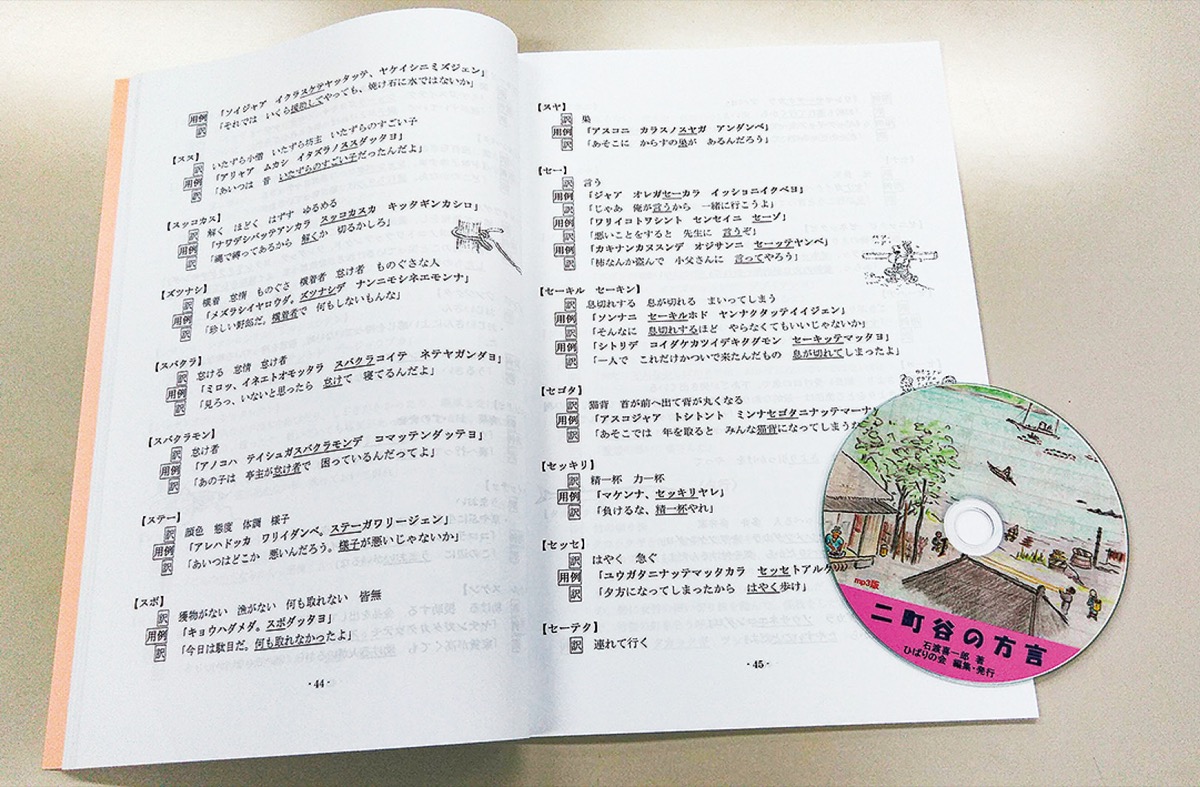 用例 「ソイジャア イクラスケテヤッタッテ、ヤケイシニミズジェン」
訳 「それでは いくら援助してやっても、焼け石に水ではないか」
【スス】
訳 いたずら小僧 いたずら坊主 いたずらのすごい子
用例 「アリャア ムカシ イタズラノススダッタヨ」
訳 「あいつは 昔 いたずらのすごい子だったんだよ」
【スッコカス】
訳 解く ほどく はずす ゆるめる
用例 「ナワデシバッテアンカラ スッコカスカ キッタギンカシロ」
訳 「縄で縛ってあるから 解くか 切るかしろ」
【ズツナシ】
訳 横着 怠惰 ものぐさ 横着者 怠け者 ものぐさな人
用例 「メズラシイヤロウダ。ズツナシデ ナンニモシネエモンナ」
訳 「珍しい野郎だ。横着者で 何もしないもんな」
【スバクラ】
訳 怠ける 怠惰 怠け者
用例 「ミロッ、イネエトオモッタラ スバクラコイテ ネテヤガンダヨ」
訳 「見ろっ、いないと思ったら 怠けて 寝てるんだよ」
【スバクラモン】
訳 怠け者
用例 「アノコハ テイシュガスバクラモンデ コマッテンダッテヨ」
訳 「あの子は 亭主が怠け者で 困っているんだってよ」
【ステー】
訳 顔色 態度 体調 様子
用例 「アレハドッカ ワリイダンベ。ステーガワリージェン」
訳 「あいつはどこか 悪いんだろう。様子が悪いじゃないか」
【スボ】
訳 獲物がない 漁がない 何も取れない 皆無
用例 「キョウハダメダ。スボダッタヨ」
訳 「今日は駄目だ。何も取れなかったよ」
- 44 -
【スヤ】
訳 巣
用例 「アスコニ カラスノスヤガ アンダンベ」
訳 「あそこに からすの巣が あるんだろう」
【セー】
訳 言う
用例 「ジャア オレガセーカラ イッショニイクベヨ」
訳 「じゃあ 俺が言うから 一緒に行こうよ」
用例 「ワリイコトワシント センセイニ セーゾ」
訳 「悪いことをすると 先生に 言うぞ」
用例 「カキナンカヌスンデ オジサンニ セーッテヤンベ」
訳 「柿なんか盗んで 小父さんに 言ってやろう」
【セーキル セーキン】
訳 息切れする 息が切れる まいってしまう
用例 「ソンナニ セーキルホド ヤンナクタッテイイジェン」
訳 「そんなに 息切れするほど やらなくてもいいじゃないか」
用例 「シトリデ コイダケカツイデキタダモン セーキッテマッタヨ」
訳 「一人で これだけかついで来たんだもの 息が切れてしまったよ」
【セゴタ】
訳 猫背 首が前へ出て背が丸くなる
用例 「アスコジャア トシトント ミンナセゴタニナッテマーナ
訳 「あそこでは 年を取ると みんな猫背になってしまう
【セッキリ】
訳 精一杯 力一杯
用例 「マケンナ、セッキリヤレ」
訳 「負けるな、精一杯やれ」
【セッセ】
訳 はやく 急ぐ
用例 「ユウガタニナッテマッタカラ セッセトアルケ
訳 「夕方になってしまったから はやく歩け」
【セーテク】
訳 連れて行く
- 45 -
mp3版
二町谷の方言
石渡喜一郎 著
ひばりの会 編集・発行